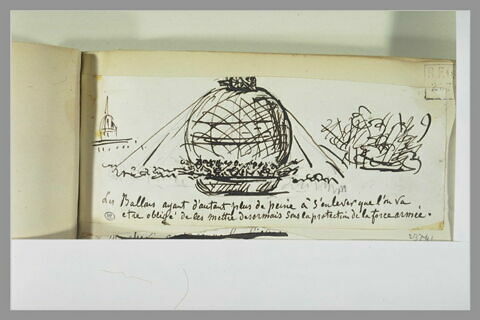 Les Ballons ayant d'autant plus de peine à s'enlever que l'on va
etre obligé de les mettre desormais sous la protection de la force armée.